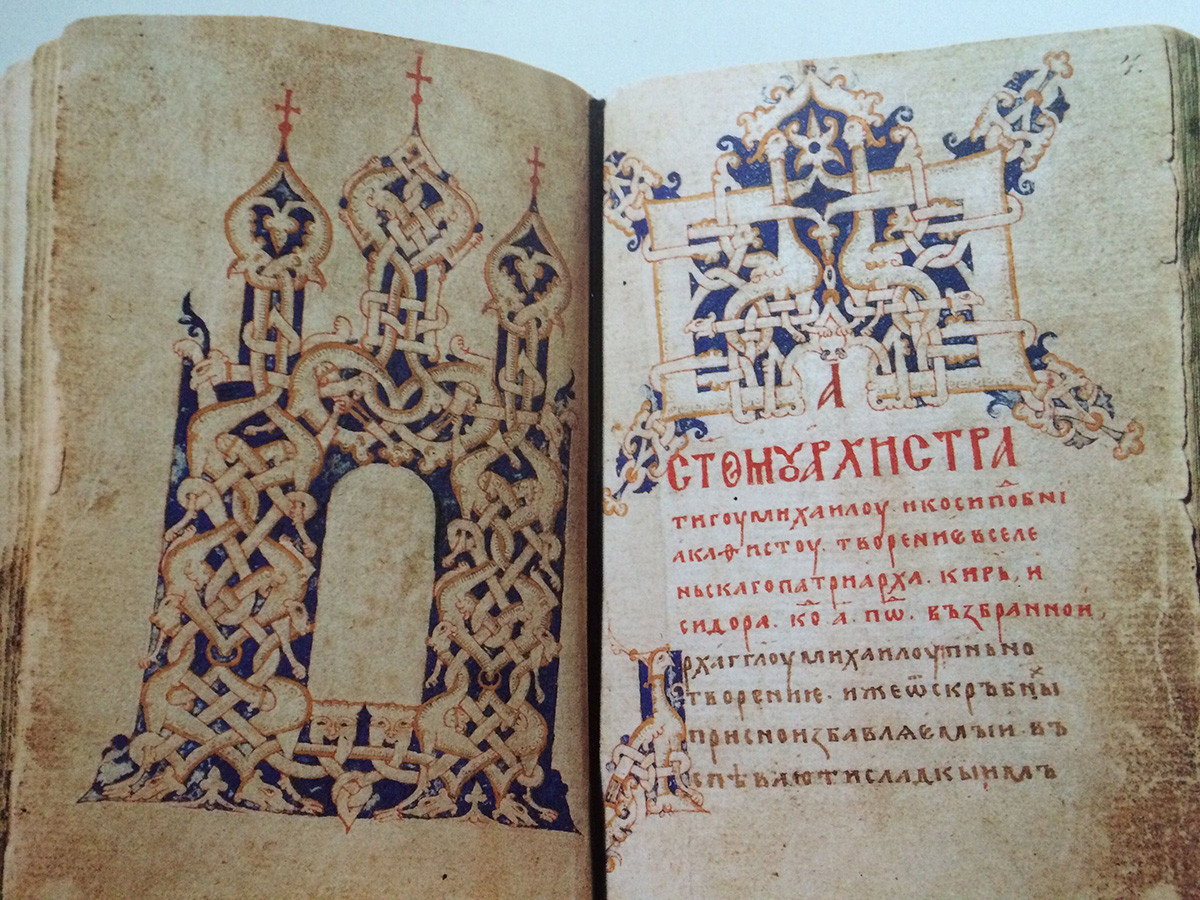 А
СТОМОУАРХИСТРА
ТИГОУМИХАИЛОУ. ИКОСИПО̂ВНІ
АКАѲИСТОУ. ТВОРЕНИѤВСЕЛЕ
НЬСКАГОПАТРИАРХА. КИРЬ, И
СИДОРА. КО̂. А҃. ПѠ̂. ВЪЗБРАННОИ,
АРХАГГЛОУМИХАИЛОУПѢНЬНО
ТВОРЕНИѤ. ИЖЕѾСКРЪБНЫХ
ПРИСНОИЗБАВЛЯЕМЫИ. ВЪ
СПѢВАЮТИСЛАДКЫИМЪ